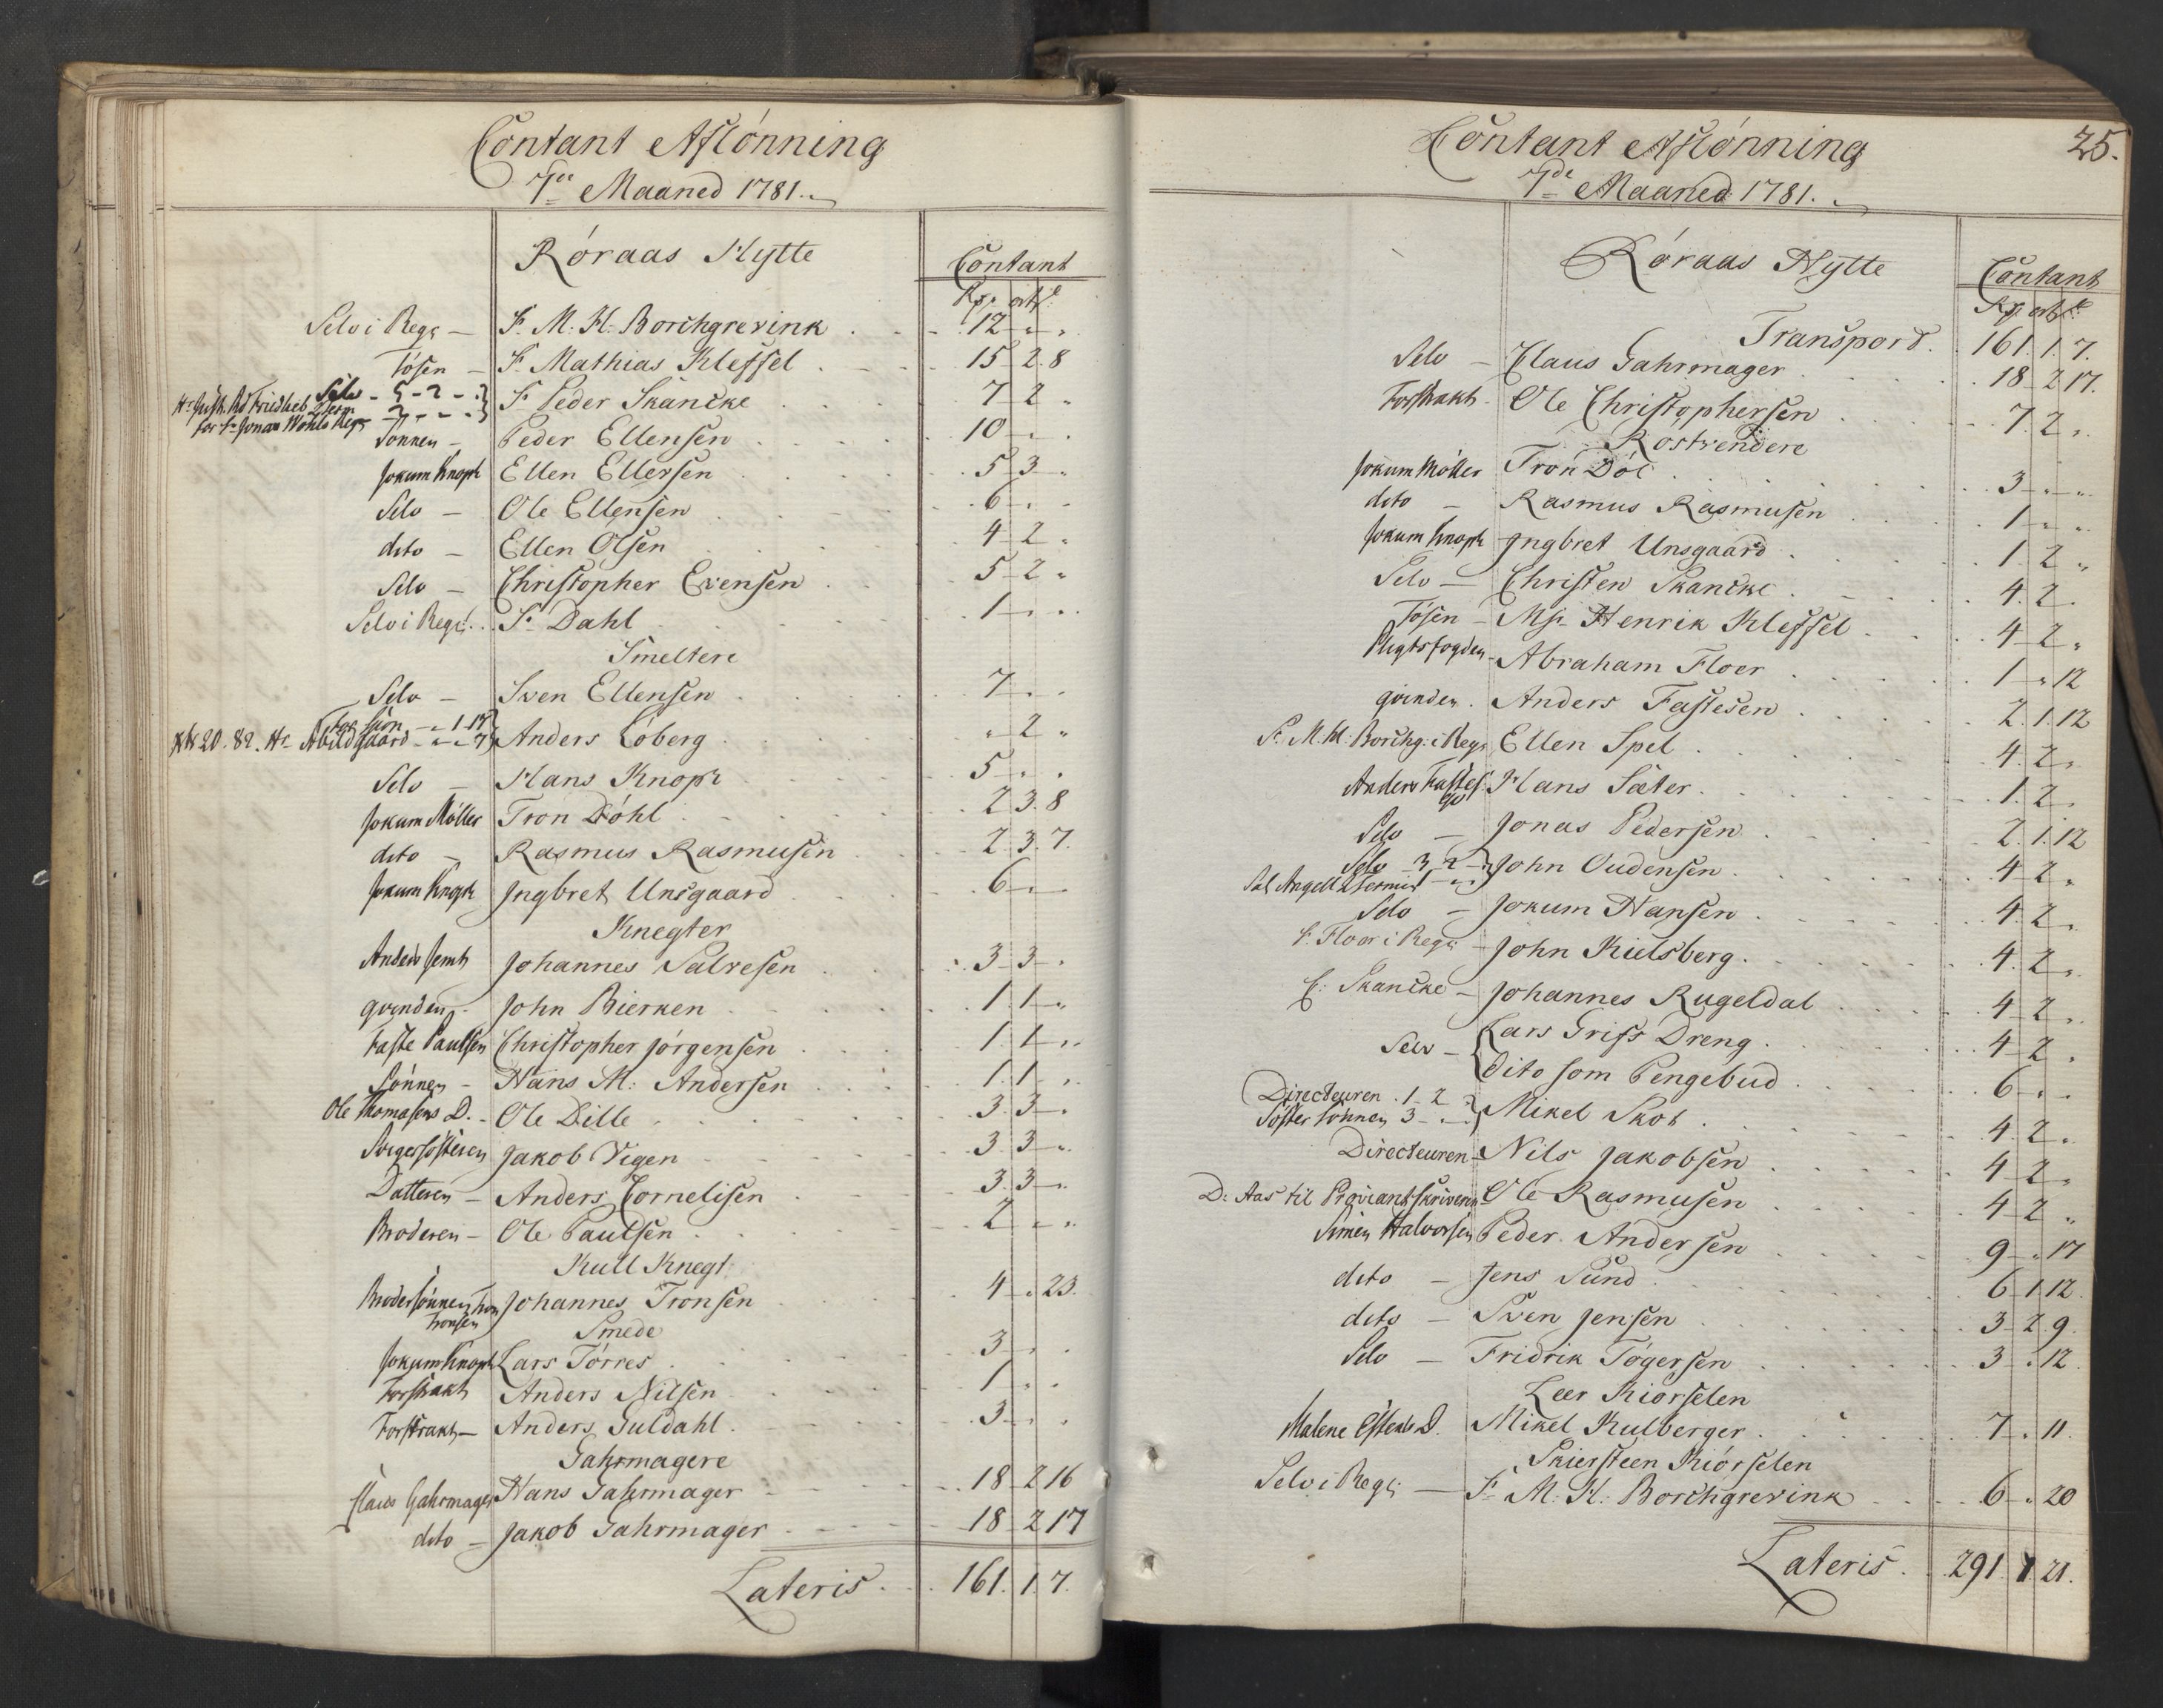 Contant Aflónning
7de Maaned 1781.
Róraas Hytte
Contant
Rx. ort s
Selv i Regn — Sr. M: H: Borchgrevink 12 " "
Tósen — Sr. Mathias Kleffel 15 2 8
Selv - 5 - 2 -
Hr Justr. Rd Friedlieb 2 Term
for Sr Jonas Wohls Regn 2 - - } Sr. Peder Skancke 7 2 "
Sónnen — Peder Ellensen 10 " "
Jokum Knoph Ellen Ellersen 5 3 "
Selv — Ole Ellensen 6 " "
dito — Ellen Olsen 4 2 "
Selv — Christopher Evensen 5 2 "
Selv i Regn. Sr. Dahl 1 " "
Smeltere
Selv — Sven Ellensen 7 " "
For Sión - " 1 17
20. 82. Hr Abildgaard - " " 7 } Anders Lóberg " 2 "
Selv — Hans Knoph 5 " "
Jokum Móller Tron Dóhl 2 3 8
dito — Rasmus Rasmusen 2 3 7
Jokum Knoph Jngbret Unsgaard 6 " "
Knegter
Anders Jemt Johannes Salvesen 3 3 "
qvinden John Bierken 1 1 "
Faste Paulsen Christopher Jórgensen 1 1 "
Sónnen — Hans M: Andersen 1 1 "
Ole Thomasens D. Ole Dille 3 3 "
Svigersósteren Jakob Vigen 3 3 "
Datteren — Anders Cornelisen 3 3 "
Broderen — Ole Paulsen 2 " "
Kull Knegt
Brodersónnen Tron
Tronsen Johannes Tronsen 4 " 23
Smede
Jokum Knoph Lars Tórres 3 " "
Forstrakt Anders Nilsen 1 " "
Forstrakt — Anders Guldahl 3 " "
Gahrmagere
Claus Gahrmager Hans Gahrmager 18 2 16
dito — Jakob Gahrmager 18 2 17
Lateris 161. 1. 7.
25.
Contant Aflónning
7de Maaned 1781.
Róraas Hytte
Contant
Rx. ort s
Transpord 161. 1. 7.
Selv — Claus Gahrmager 18 2 17.
Forstrakt — Ole Christophersen 7 2 "
Róstvendere
Jokum Móller Tron Dól 3 " "
dito — Rasmus Rasmusen 1 " "
Jokum Knoph Jngbret Unsgaard 1 2 "
Selv — Christen Skancke 4 2 "
Tósen — Msr. Henrik Kleffel 4 2 "
Pligtsfogden — Abraham Floer 1 " 12
qvinden. Anders Fastesen 2 1 12
Sr. M: H: Borchg: i Regn Ellen Spel 4 2 "
Anders Fastes: Hans Sæter 1 2 "
Selv — Jonas Pedersen 2 1 12
Selv 3 2 -
Sal Angell 2 Termin 1 - - } John Oudensen 4 2 "
Selv — Jokum Hansen 4 2 "
Sr. Floor i Regn — John Kielsberg 4 2 "
C: Skancke — Johannes Rugeldal 4 2 "
Selv — { Lars Griss Dreng 4 2 "
Dito som Pengebud 6 " "
Directeuren . 1 2
Sóster Sónnen 3 - - } Mikel Skot 4 2 "
Directeuren — Nils Jakobsen 4 2 "
D: Aas til Proviantskriveren Ole Rasmusen 4 2 "
Simen Halvorsen Peder Andersen 9 " 17
dito — Jens Sund 6 1 12
dito — Sven Jensen 3 2 9
Selv — Fridrik Tógersen 3 " 12
Leer Kiórselen
Malene Estens D. Mikel Kulberger 7 " 11
Skiersteen Kiórselen
Selv i Regn — Sr. M: H: Borchgrevink 6 " 20
Lateris 291. 1. 21.